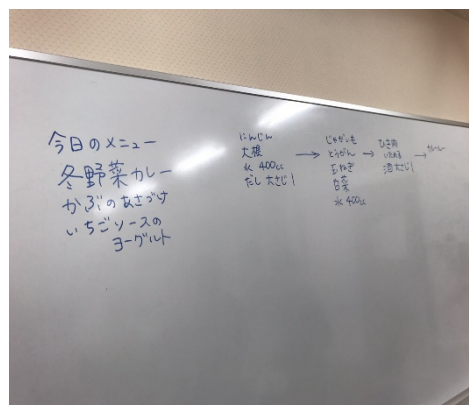 今日のメニュー
冬野菜カレー
かぶのあさづけ
いちごソースの
ヨーグルト
にんじん
大根
水 400cc
だし 大さじ1
→
じゃがいも
とうがん
玉ねぎ
白菜
水 400cc
→
ひき肉
いためる
酒大さじ1
→
カレールー